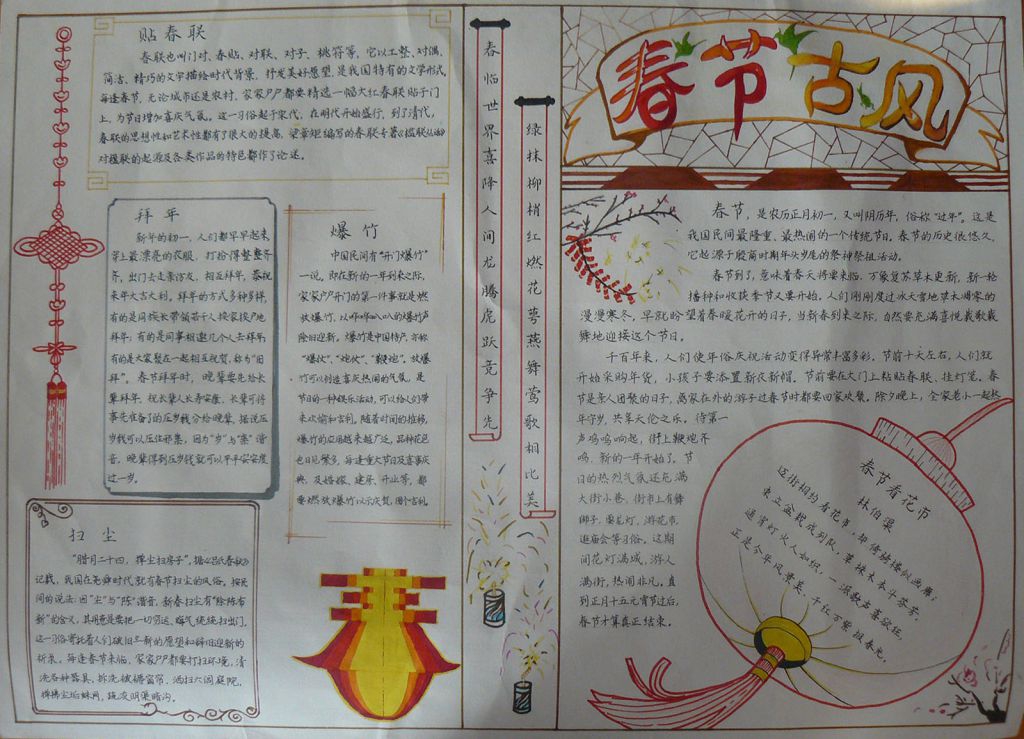 春节古风
贴春联
春联也叫门对、春贴、对联、对子、桃符等，它以工整、对偶、
简洁、精巧的文字描绘时代背景，抒发美好愿望，是我国特有的文学形式，
每逢春节，无论城市还是农村，家家户户都要精选一幅大红春联贴于门
上，为节日增加喜庆气氛。这一习俗起于宋代，在明代开始盛行，到了清代，
春联的思想性和艺术性都有了很大的提高，梁章矩编写的春联专著《槛联丛话》
对楹联的起源及各类作品的特色都作了论述。
拜年
新年的初一，人们都早早起来，
穿上最漂亮的衣服，打扮得整整齐
齐，出门去走亲访友，相互拜年，恭祝
来年大吉大利。拜年的方式多种多样，
有的是同族长带领若干人挨家挨户地
拜年；有的是同事相邀几个人去拜年；
有的是大家聚在一起相互祝贺，称为“团
拜”。春节拜年时，晚辈要先给长
辈拜年，祝长辈人长寿安康，长辈可将
事先准备的压岁钱分给晚辈，据说压
岁钱可以压住邪祟，因为“岁”与“祟”谐
音，晚辈得到压岁钱就可以平平安安度
过一岁。
爆竹
中国民间有“开门爆竹”
一说，即在新的一年到来之际，
家家户户开门的第一件事就是燃
放爆竹，以哔哔叭叭的爆竹声
除旧迎新。爆竹是中国特产，亦称
“爆仗”、“炮仗”、“鞭炮”。放爆
竹可以创造喜庆热闹的气氛，是
节日的一种娱乐活动，可以给人们带
来欢愉和吉利。随着时间的推移，
爆竹的应用越来越广泛，品种花色
也日见繁多，每逢重大节日及喜事庆
典，及婚嫁、建房、开业等，都
要燃放爆竹以示庆贺，图个吉利。
扫尘
“腊月二十四，掸尘扫房子”，据《吕氏春秋》
记载，我国在尧舜时代就有春节扫尘的风俗。按民
间的说法：因“尘”与“陈”谐音，新春扫尘有“除陈布
新”的含义，其用意是要把一切穷运、晦气统统扫出门。
这一习俗寄托着人们破旧立新的愿望和辞旧迎新的
祈求。每逢春节来临，家家户户都要打扫环境，清
洗各种器具，拆洗被褥窗帘，洒扫六闾庭院，
掸拂尘垢蛛网，疏浚明渠暗沟。
春临世界喜降人间龙腾虎跃竞争先
绿抹柳梢红燃花萼燕舞莺歌相比美
春节，是农历正月初一，又叫阴历年，俗称“过年”。这是
我国民间最隆重、最热闹的一个传统节日。春节的历史很悠久，
它起源于殷商时期年头岁尾的祭神祭祖活动。
春节到了，意味着春天将要来临，万象复苏草木更新，新一轮
播种和收获季节又要开始。人们刚刚度过冰天雪地草木凋零的
漫漫寒冬，早就盼望着春暖花开的日子，当新春到来之际，自然要充满喜悦载歌载
舞地迎接这个节日。
千百年来，人们使年俗庆祝活动变得异常丰富多彩。节前十天左右，人们就
开始采购年货，小孩子要添置新衣新帽。节前要在大门上粘贴春联、挂灯笼。春
节是亲人团聚的日子，离家在外的游子过春节时都要回家欢聚。除夕晚上，全家老小一起熬
年守岁，共享天伦之乐，待第一
声鸡鸣响起，街上鞭炮齐
鸣，新的一年开始了。节
日的热烈气氛还充满
大街小巷，街市上有舞
狮子、耍龙灯、游花市、
逛庙会等习俗。这期
间花灯满城，游人
满街，热闹非凡，直
到正月十五元宵节过后，
春节才算真正结束。
春节看花市
林伯渠
迈街相约看花市，却倚骑楼似画廊；
束立盆栽成列队，草株木本斗芬芳。
通宵灯火人如织，一派歌声喜欲狂。
正是今年风景美，千红万紫报春光。